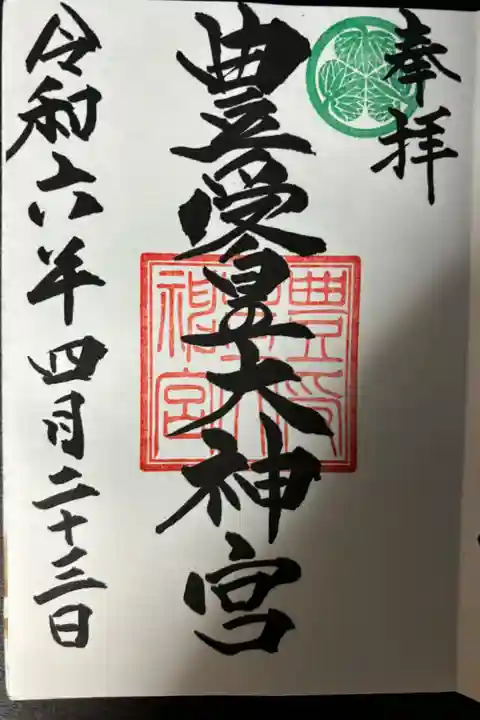 奉拝
豊受皇大神宮
豊受
皇大
神宮
令和六年四月二十三日